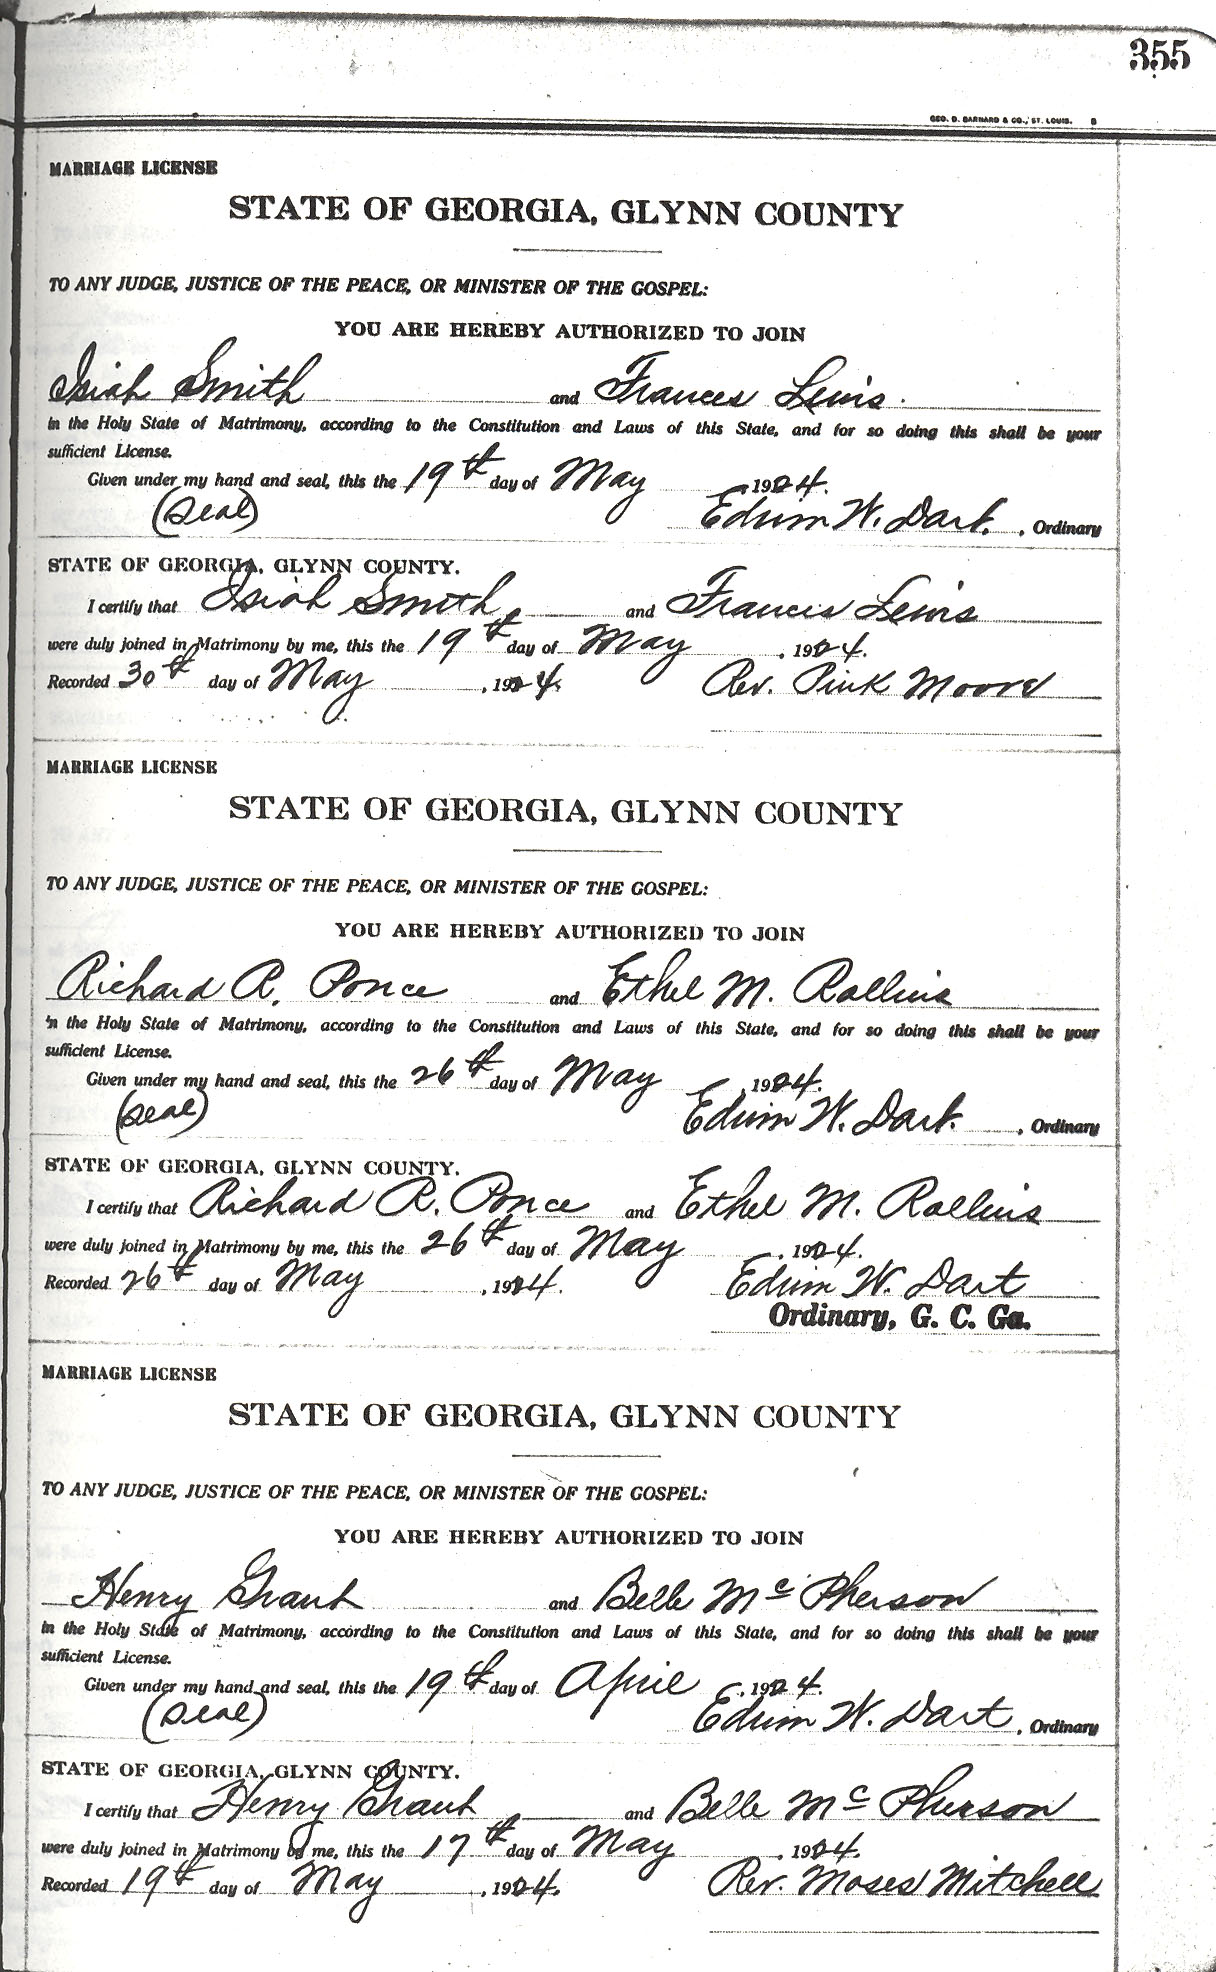 355
GEO. D. BARNARD & CO., ST. LOUIS. B
MARRIAGE LICENSE
STATE OF GEORGIA, GLYNN COUNTY
TO ANY JUDGE, JUSTICE OF THE PEACE, OR MINISTER OF THE GOSPEL:
YOU ARE HEREBY AUTHORIZED TO JOIN
Isiah Smith and Frances Lewis.
in the Holy State of Matrimony, according to the Constitution and Laws of this State, and for so doing this shall be your
sufficient License.
Given under my hand and seal, this the 19th day of May 1924.
(Seal) Edwin W. Dart. , Ordinary
STATE OF GEORGIA, GLYNN COUNTY.
I certify that Isiah Smith and Francis Lewis
were duly joined in Matrimony by me, this the 19th day of May , 1924.
Recorded 30th day of May , 1924. Rev. Pink Moore
MARRIAGE LICENSE
STATE OF GEORGIA, GLYNN COUNTY
TO ANY JUDGE, JUSTICE OF THE PEACE, OR MINISTER OF THE GOSPEL:
YOU ARE HEREBY AUTHORIZED TO JOIN
Richard R. Ponce and Ethel M. Rollins
in the Holy State of Matrimony, according to the Constitution and Laws of this State, and for so doing this shall be your
sufficient License.
Given under my hand and seal, this the 26th day of May , 1924.
(Seal) Edwin W. Dart. , Ordinary
STATE OF GEORGIA, GLYNN COUNTY.
I certify that Richard R. Ponce and Ethel M. Rollins
were duly joined in Matrimony by me, this the 26th day of May , 1924.
Recorded 26th day of May , 1924. Edwin W. Dart
Ordinary, G. C. Ga.
MARRIAGE LICENSE
STATE OF GEORGIA, GLYNN COUNTY
TO ANY JUDGE, JUSTICE OF THE PEACE, OR MINISTER OF THE GOSPEL:
YOU ARE HEREBY AUTHORIZED TO JOIN
Henry Grant and Belle McPherson
in the Holy State of Matrimony, according to the Constitution and Laws of this State, and for so doing this shall be your
sufficient License.
Given under my hand and seal, this the 19th day of April , 1924.
(Seal) Edwin W. Dart , Ordinary
STATE OF GEORGIA, GLYNN COUNTY.
I certify that Henry Grant and Belle McPherson
were duly joined in Matrimony by me, this the 17th day of May , 1924.
Recorded 19th day of May , 1924. Rev. Moses Mitchell